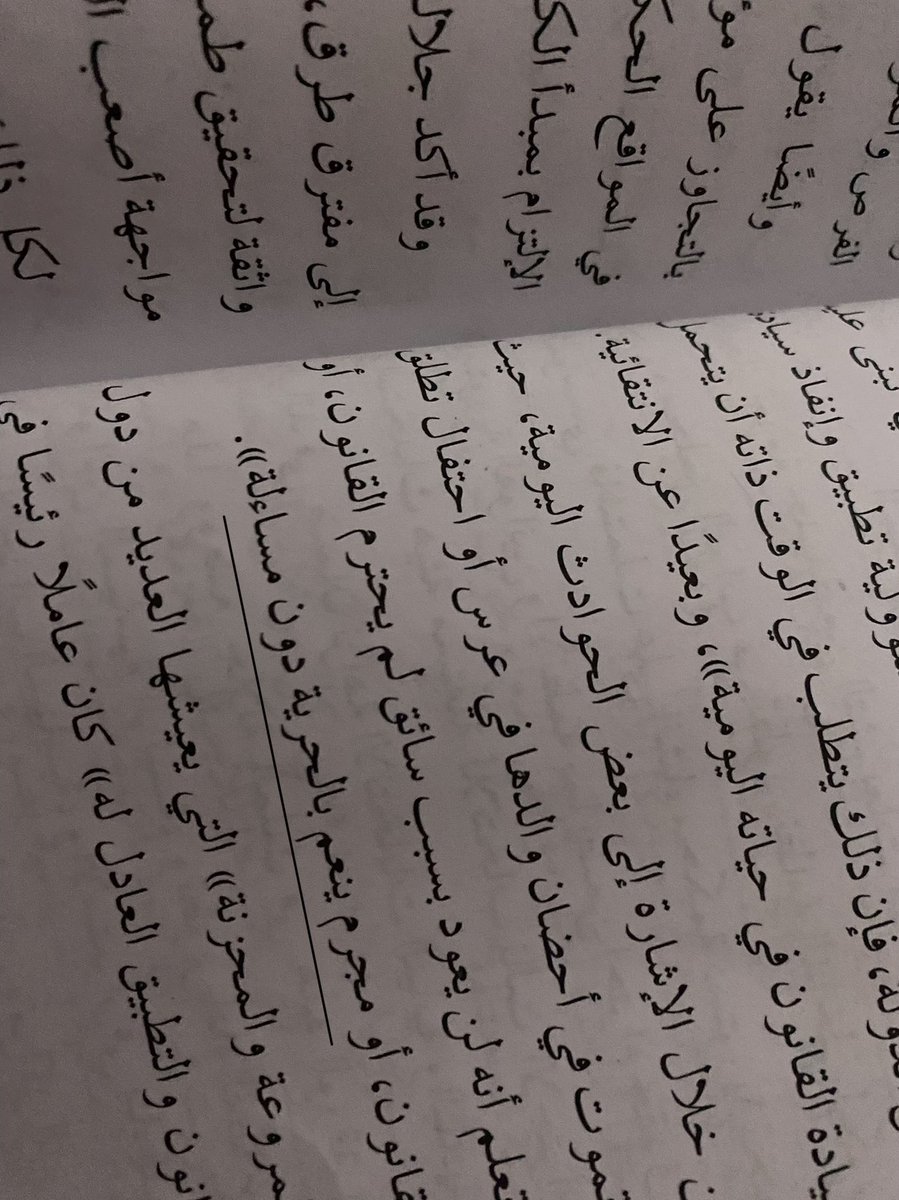 نبنى
ؤولية تطبيق وإنفاذ
الدولة، فإن ذلك يتطلب في الوقت ذاته أن يتحمل
يادة القانون في حياته اليومية»، وبعيدًا عن الانتقائية.
ن خلال الإشارة إلى بعض الحوادث اليومية، حيث
تموت في أحضان والدها في عرس أو احتفال تطلق
تعلم أنه لن يعود بسبب سائق لم يحترم القانون، أو
قانون، أو مجرم ينعم بالحرية دون مساءلة».
مروعة والمحزنة» التي يعيشها العديد من دول
انون والتطبيق العادل له» كان عاملًا رئيسًا في
الفرص
وأيضًا يقول
بالتجاوز على مؤ
في المواقع الحك
الإلتزام بمبدأ الك
وقد أكد جلال
إلى مفترق طرق،
واثقة لتحقيق طم
مواجهة أصعب ا
لكل